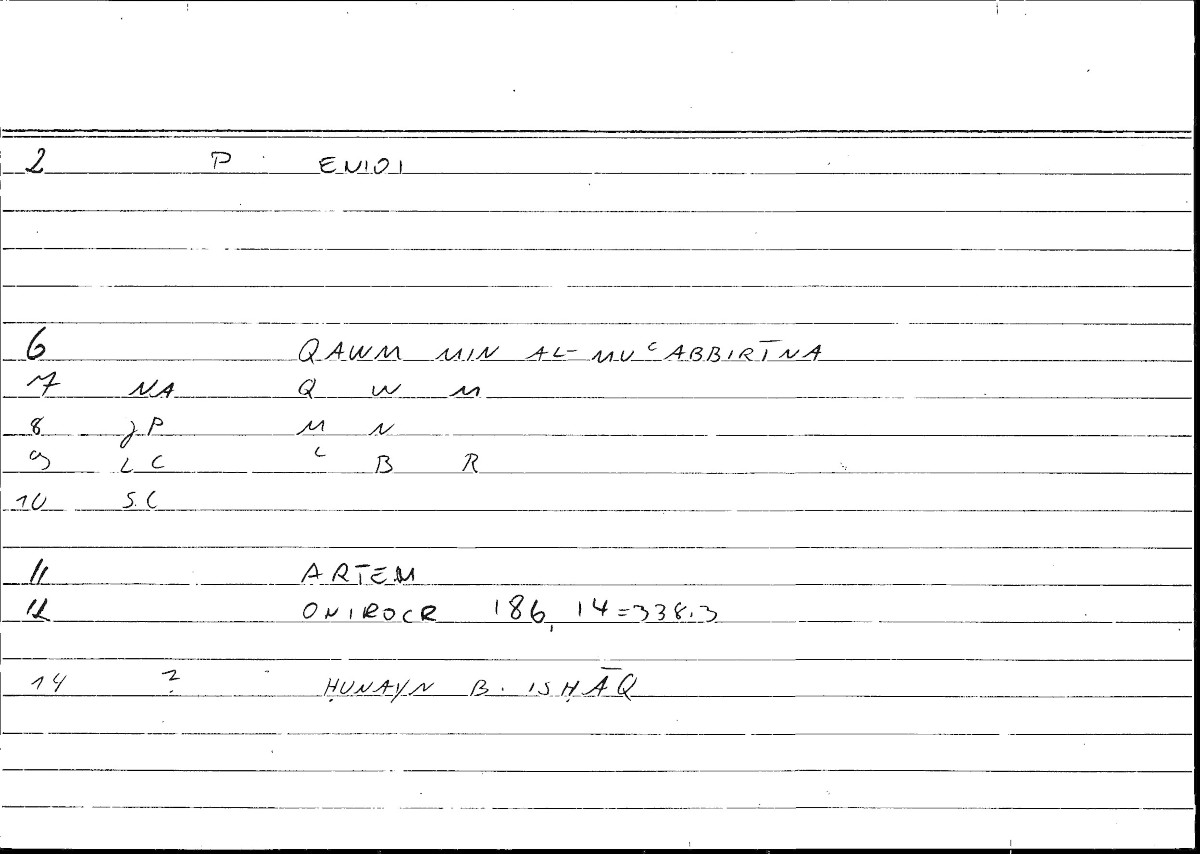 2 P ENIOI
6 QAWM MIN AL-MUʿABBIRĪNA
7 NA Q W M
8 JP M N
9 LC ʿ B R
10 SC
11 ARTEM
12 ONIROCR 186, 14=338.3
14 ? ḤUNAYN B. ISḤĀQ